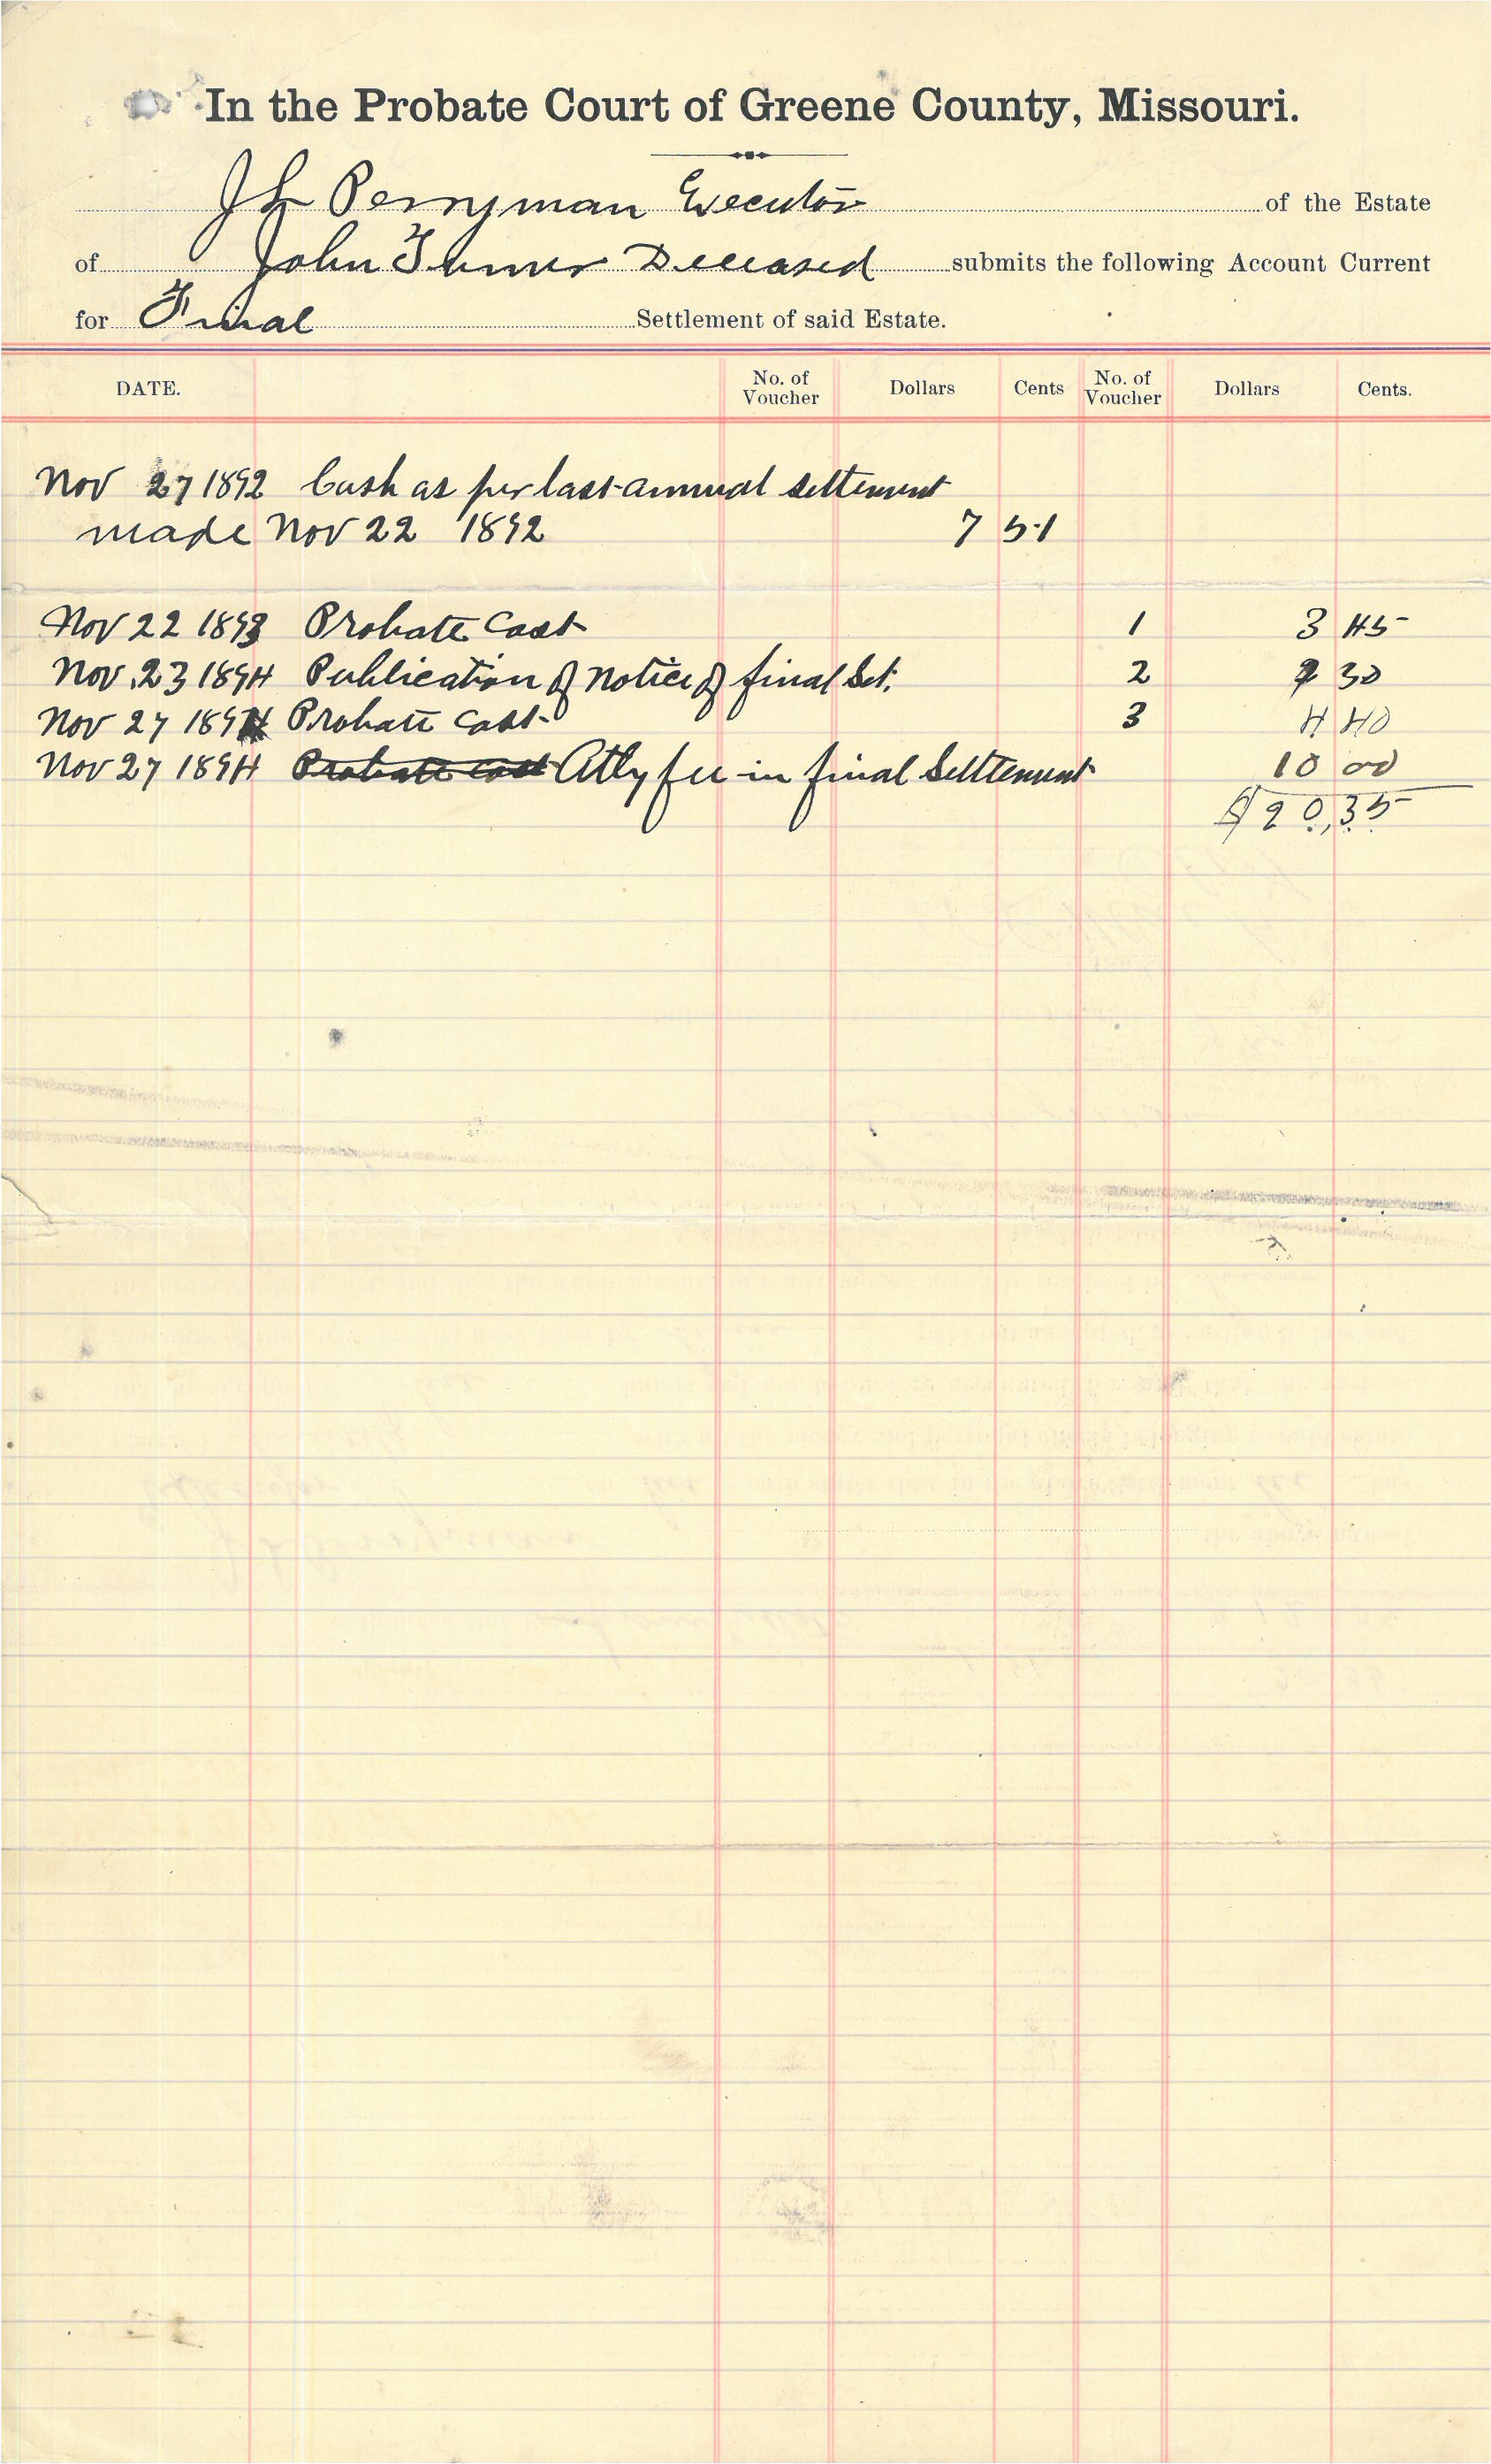 In the Probate Court of Greene County, Missouri.
J L Perryman Executor of the Estate
of John Turner Deceased submits the following Account Current
for Final Settlement of said Estate.
DATE. No. of Voucher Dollars Cents No. of Voucher Dollars Cents.
Nov 27 1892 Cash as per last annual settement
made Nov 22 1892 7 51
Nov 22 1893 Probate Cost 1 3 45
Nov. 23 1894 Publication of notice of final Set. 2 2 30
Nov 27 1894 Probate Cost 3 4 40
Nov 27 1894 Probate Cost Atty fee in final Settlement 10 00
$20,35